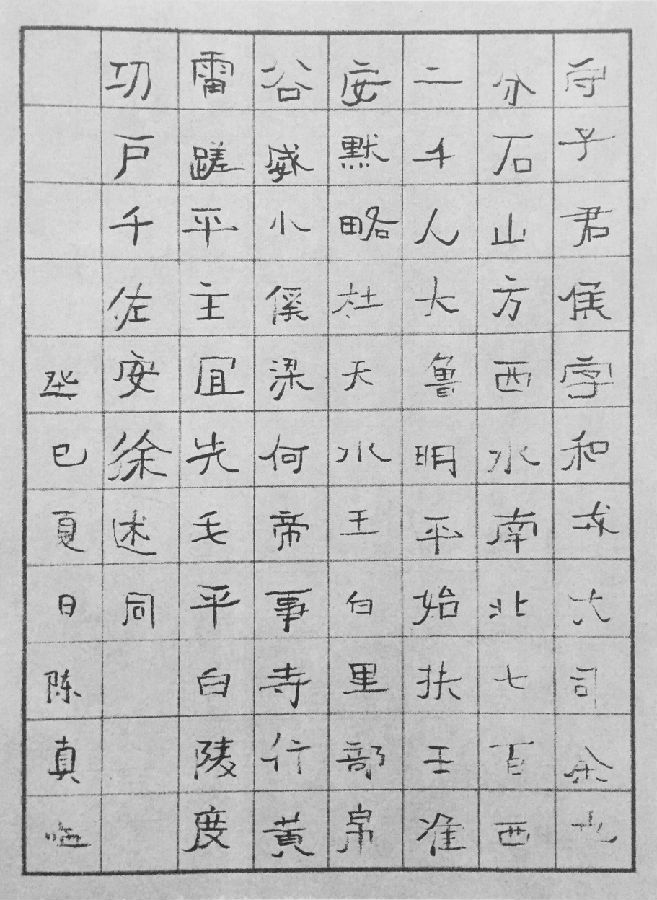 守子君侯字和戎六司余也
分石山方西水南北七百西
二千人大魯明平始扶王准
安默略杜天水王白里部帛
谷威小傒梁何帝事寺行黃
雷蹉平主宜先毛平白陵度
功戶千佐安徐述同
巳夏日陳真臨